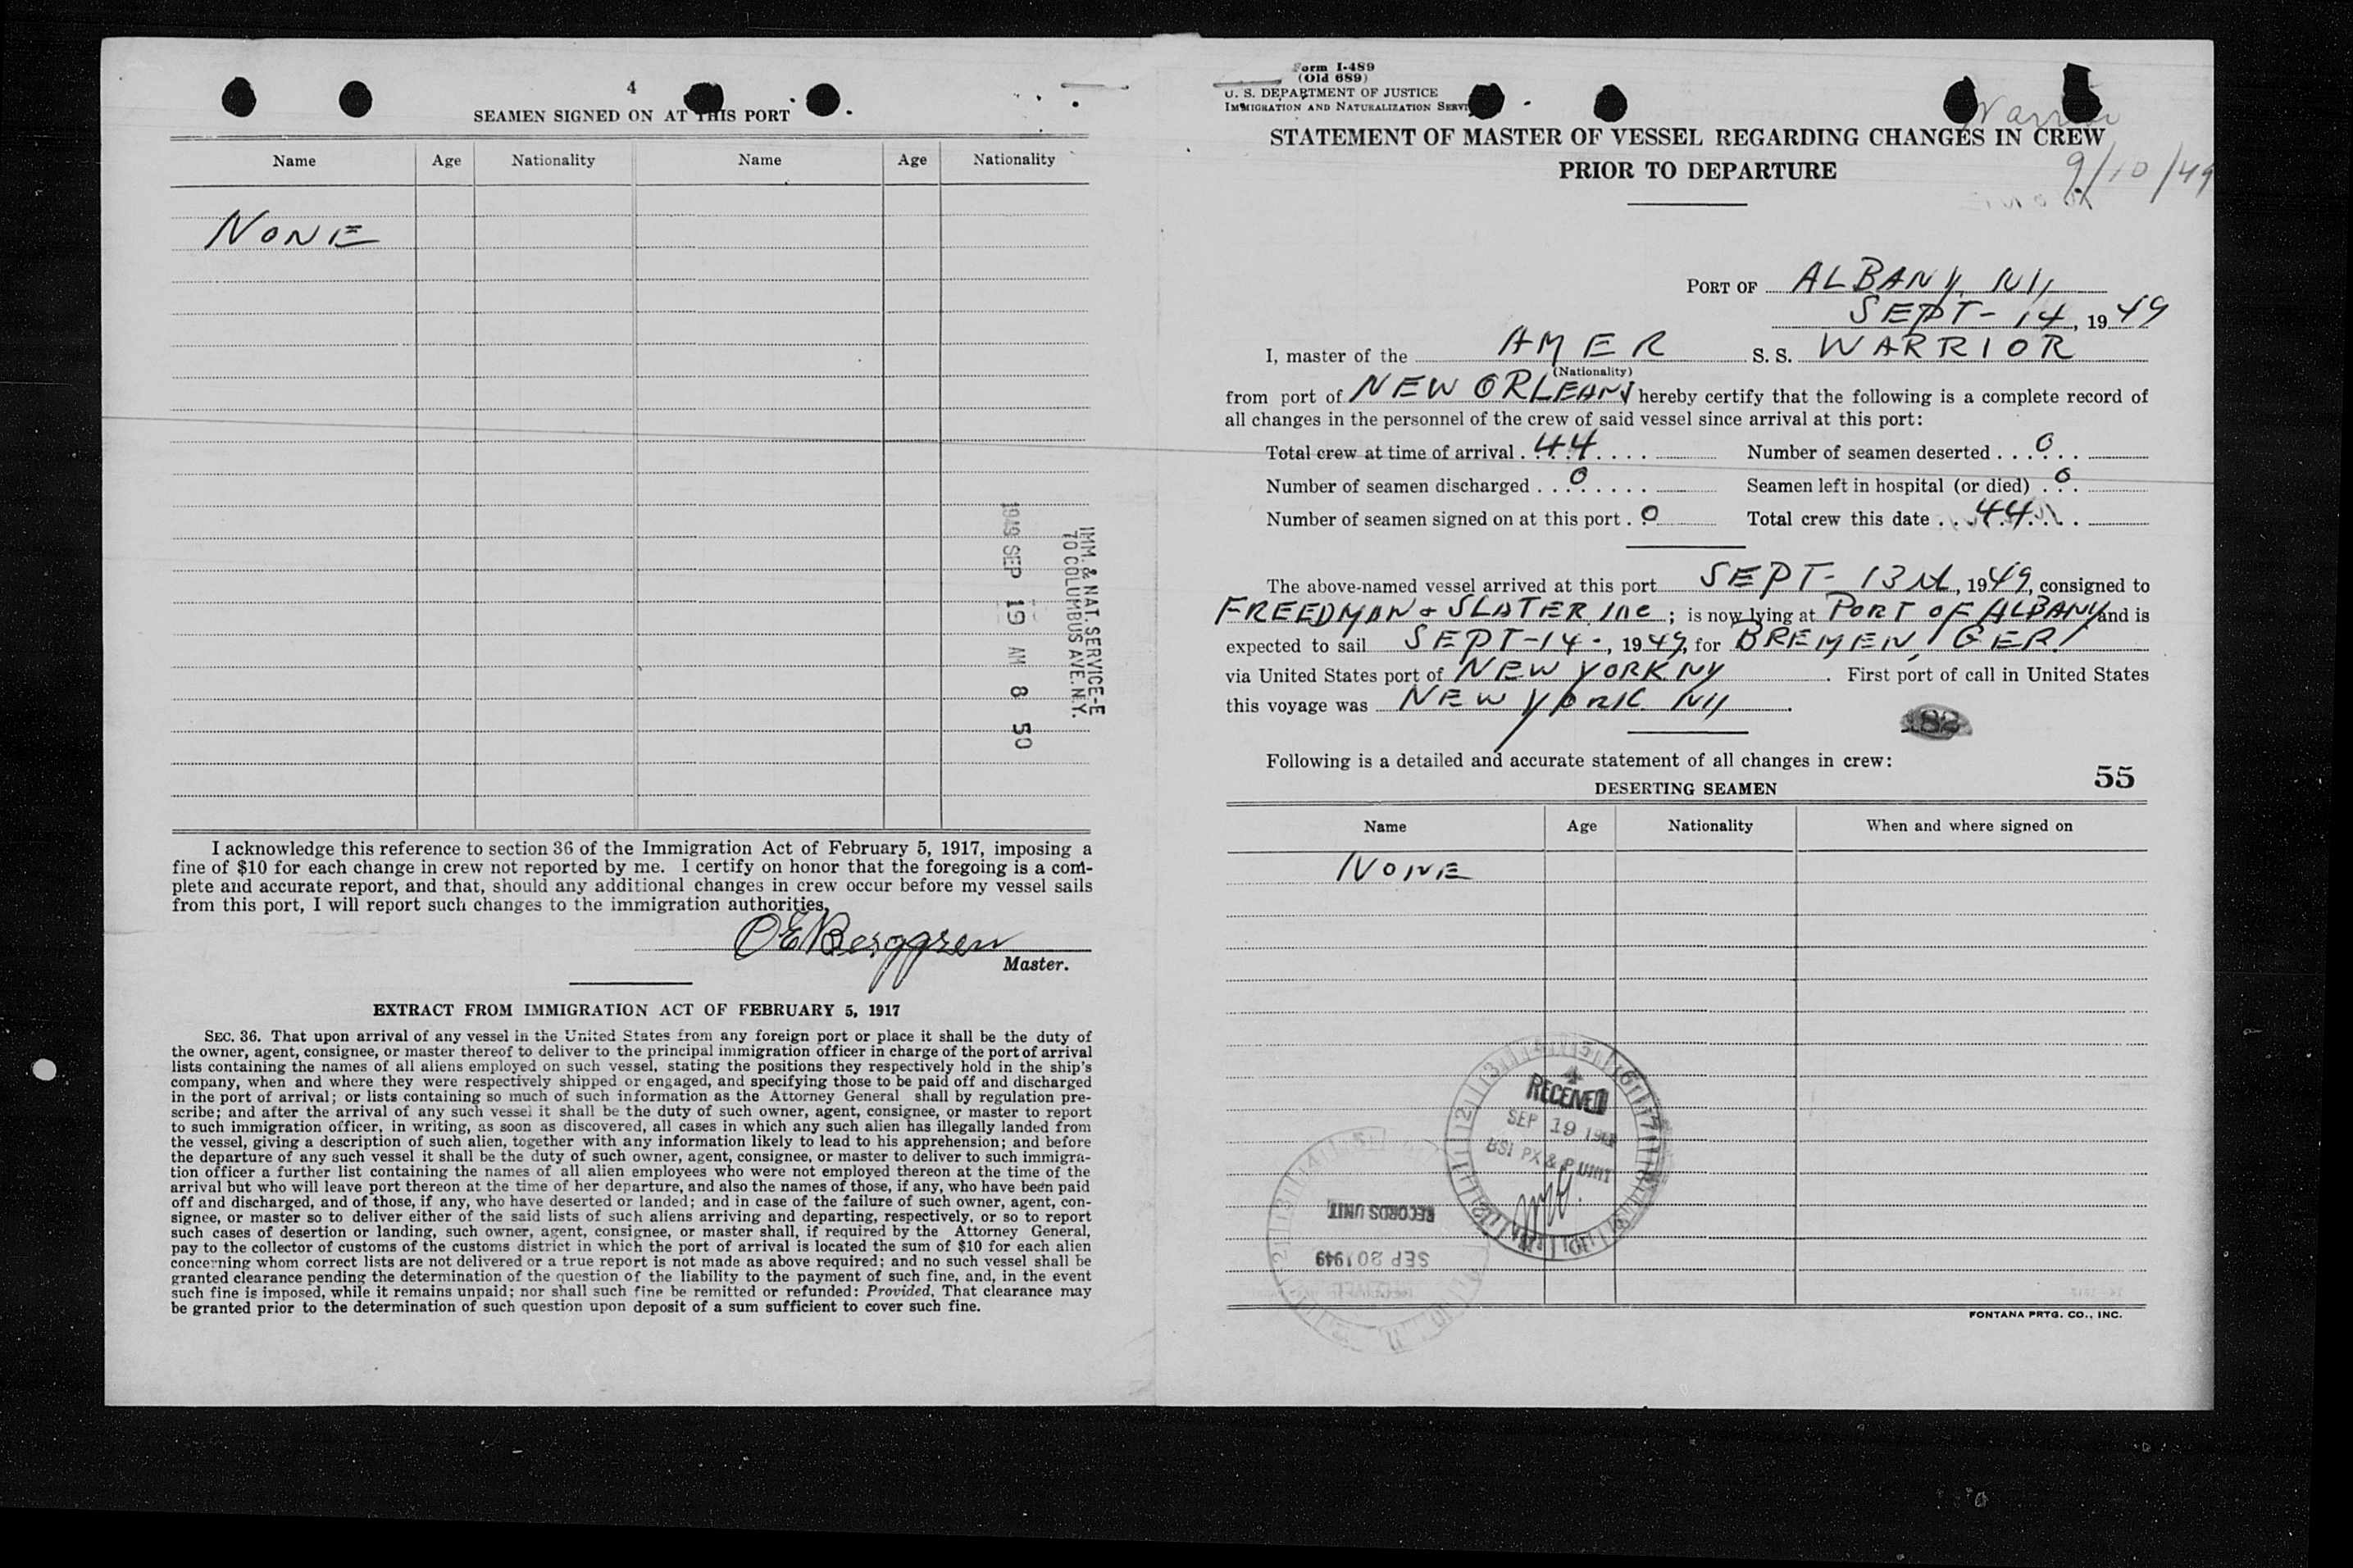 4
SEAMEN SIGNED ON AT THIS PORT
Name Age Nationality Name Age Nationality
NONE
1949 SEP 19 AM 8 50
IMM. & NAT. SERVICE-E
70 COLUMBUS AVE. N.Y.
I acknowledge this reference to section 36 of the Immigration Act of February 5, 1917, imposing a
fine of $10 for each change in crew not reported by me. I certify on honor that the foregoing is a com-
plete and accurate report, and that, should any additional changes in crew occur before my vessel sails
from this port, I will report such changes to the immigration authorities.
O E Berggren
Master.
EXTRACT FROM IMMIGRATION ACT OF FEBRUARY 5, 1917
SEC. 36. That upon arrival of any vessel in the United States from any foreign port or place it shall be the duty of
the owner, agent, consignee, or master thereof to deliver to the principal immigration officer in charge of the port of arrival
lists containing the names of all aliens employed on such vessel, stating the positions they respectively hold in the ship's
company, when and where they were respectively shipped or engaged, and specifying those to be paid off and discharged
in the port of arrival; or lists containing so much of such information as the Attorney General shall by regulation pre-
scribe; and after the arrival of any such vessel it shall be the duty of such owner, agent, consignee, or master to report
to such immigration officer, in writing, as soon as discovered, all cases in which any such alien has illegally landed from
the vessel, giving a description of such alien, together with any information likely to lead to his apprehension; and before
the departure of any such vessel it shall be the duty of such owner, agent, consignee, or master to deliver to such immigra-
tion officer a further list containing the names of all alien employees who were not employed thereon at the time of the
arrival but who will leave port thereon at the time of her departure, and also the names of those, if any, who have been paid
off and discharged, and of those, if any, who have deserted or landed; and in case of the failure of such owner, agent, con-
signee, or master so to deliver either of the said lists of such aliens arriving and departing, respectively, or so to report
such cases of desertion or landing, such owner, agent, consignee, or master shall, if required by the Attorney General,
pay to the collector of customs of the customs district in which the port of arrival is located the sum of $10 for each alien
concerning whom correct lists are not delivered or a true report is not made as above required; and no such vessel shall be
granted clearance pending the determination of the question of the liability to the payment of such fine, and, in the event
such fine is imposed, while it remains unpaid; nor shall such fine be remitted or refunded: Provided, That clearance may
be granted prior to the determination of such question upon deposit of a sum sufficient to cover such fine.
Form I-489
(Old 689)
U. S. DEPARTMENT OF JUSTICE
IMMIGRATION AND NATURALIZATION SERVI
Warrior
STATEMENT OF MASTER OF VESSEL REGARDING CHANGES IN CREW
PRIOR TO DEPARTURE
9/10/49
PORT OF ALBANY, NY,
SEPT- 14, 1949
I, master of the AMER S. S. WARRIOR
(Nationality)
from port of NEW ORLEANS hereby certify that the following is a complete record of
all changes in the personnel of the crew of said vessel since arrival at this port:
Total crew at time of arrival . 44 . . . . Number of seamen deserted . . . 0 . .
Number of seamen discharged . . . 0 . . . . Seamen left in hospital (or died) . 0 .
Number of seamen signed on at this port . 0 Total crew this date . . 44 . . .
The above-named vessel arrived at this port SEPT- 13th, 1949, consigned to
FREEDMAN & SLATER, Inc; is now lying at PORT OF ALBANY and is
expected to sail SEPT-14-, 1949, for BREMEN, GER.
via United States port of NEW YORK NY. First port of call in United States
this voyage was NEW YORK NY.
82
Following is a detailed and accurate statement of all changes in crew:
55
DESERTING SEAMEN
Name Age Nationality When and where signed on
NONE
RECEIVED
SEP 19 1949
BSI PX & P UNIT
RECORDS UNIT
SEP 20 1949
FONTANA PRTG. CO., INC.